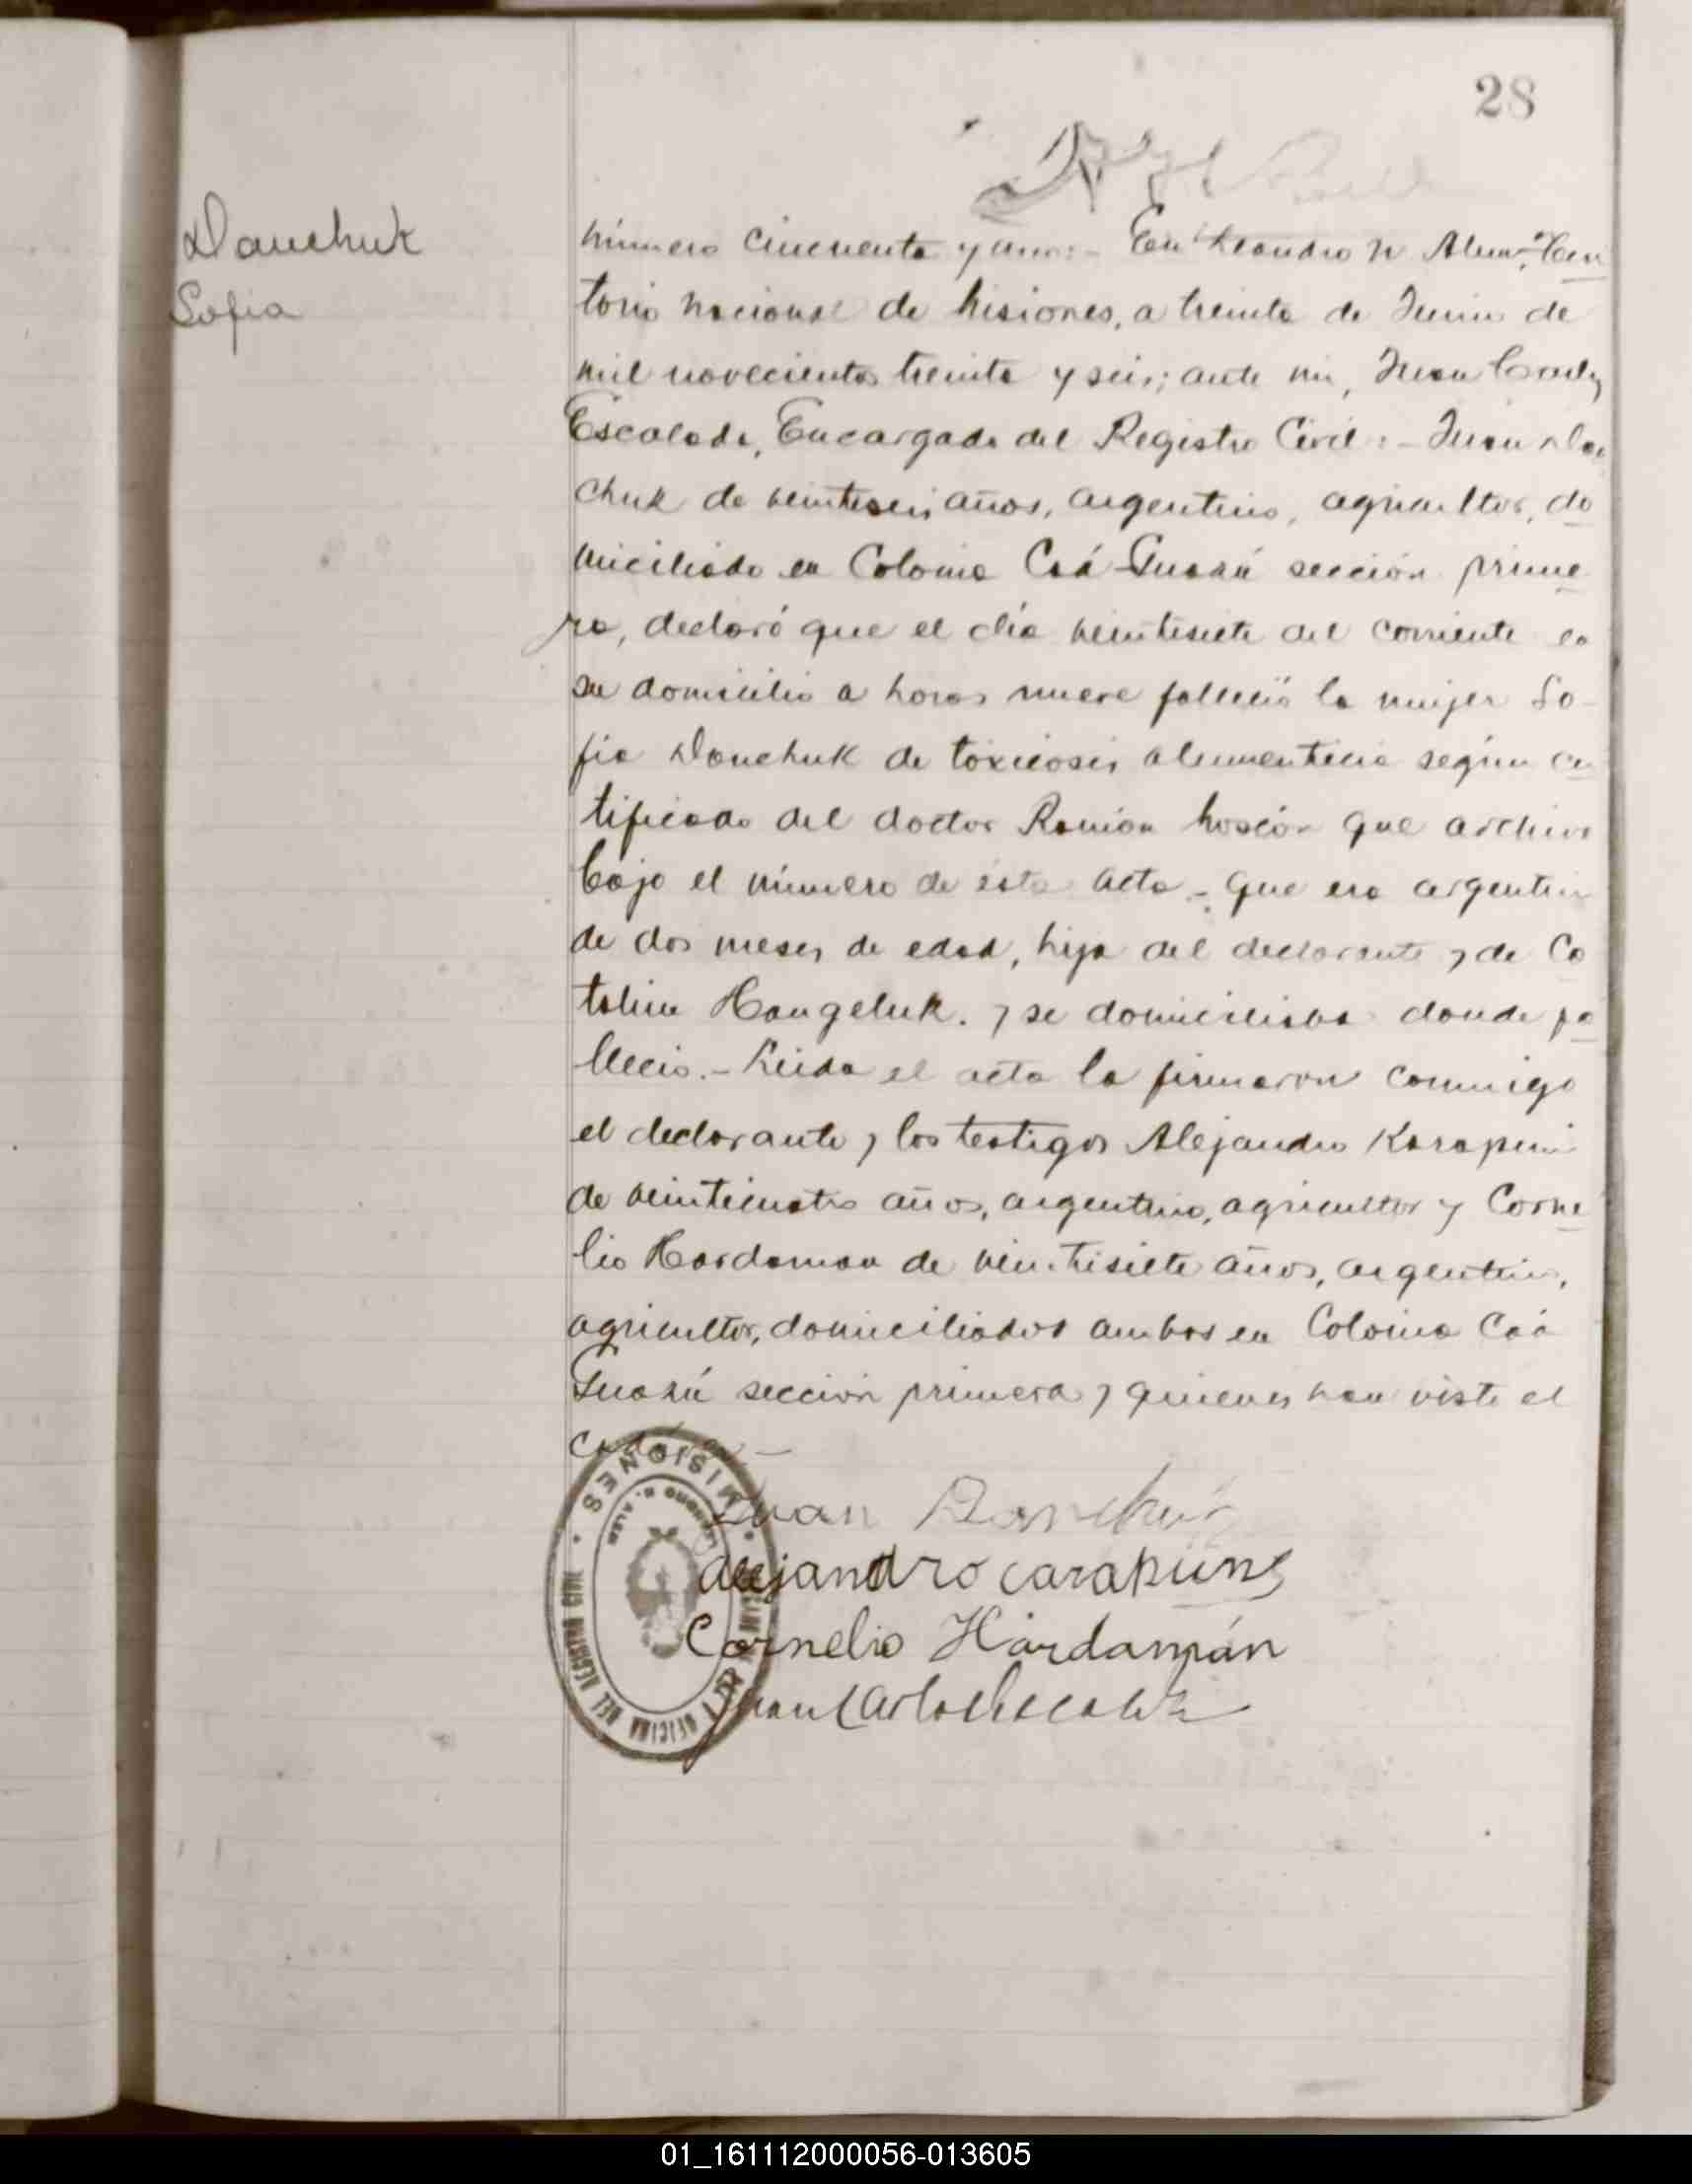 28
Danchuk
Sofia
Número cincuenta y uno:- En Leandro N Alem, Terri
torio Nacional de Misiones, a treinta de Junio de
mil novecientos treinta y seis; ante mi, Juan Carlos
Escalada, Encargado del Registro Civil:- Juan Dan
chuk de veintiseis años, argentino, agricultor, do
miciliado en Colonia Caá-Guazú sección prime
ra, declaró que el día veintisiete del corriente en
su domicilio a horas nueve falleció la mujer So-
fia Danchuk de toxicosis alimenticia según cer
tificado del doctor Ramón que archivo
bajo el número de ésta acta.- Que era argentina
de dos meses de edad, hija del declarante y de Ca
talina Hangeluk. y se domiciliaba donde fa
lleció.- Leída el acta la firmaron conmigo
el declarante y los testigos Alejandro
de veinticuatro años, argentino, agricultor y Corne
lio Hardaman de veintisiete años, argentino,
agricultor, domiciliados ambos en Colonia Caá
Guazú sección primera y quienes han visto el
cadáver.-
Juan Danchuk
Alejandro carapuns
Cornelio Hardamán
Juan Carlos Escalada
MISIONES
LEANDRO N. ALEM
OFICINA DEL REGISTRO CIVIL
01_161112000056-013605